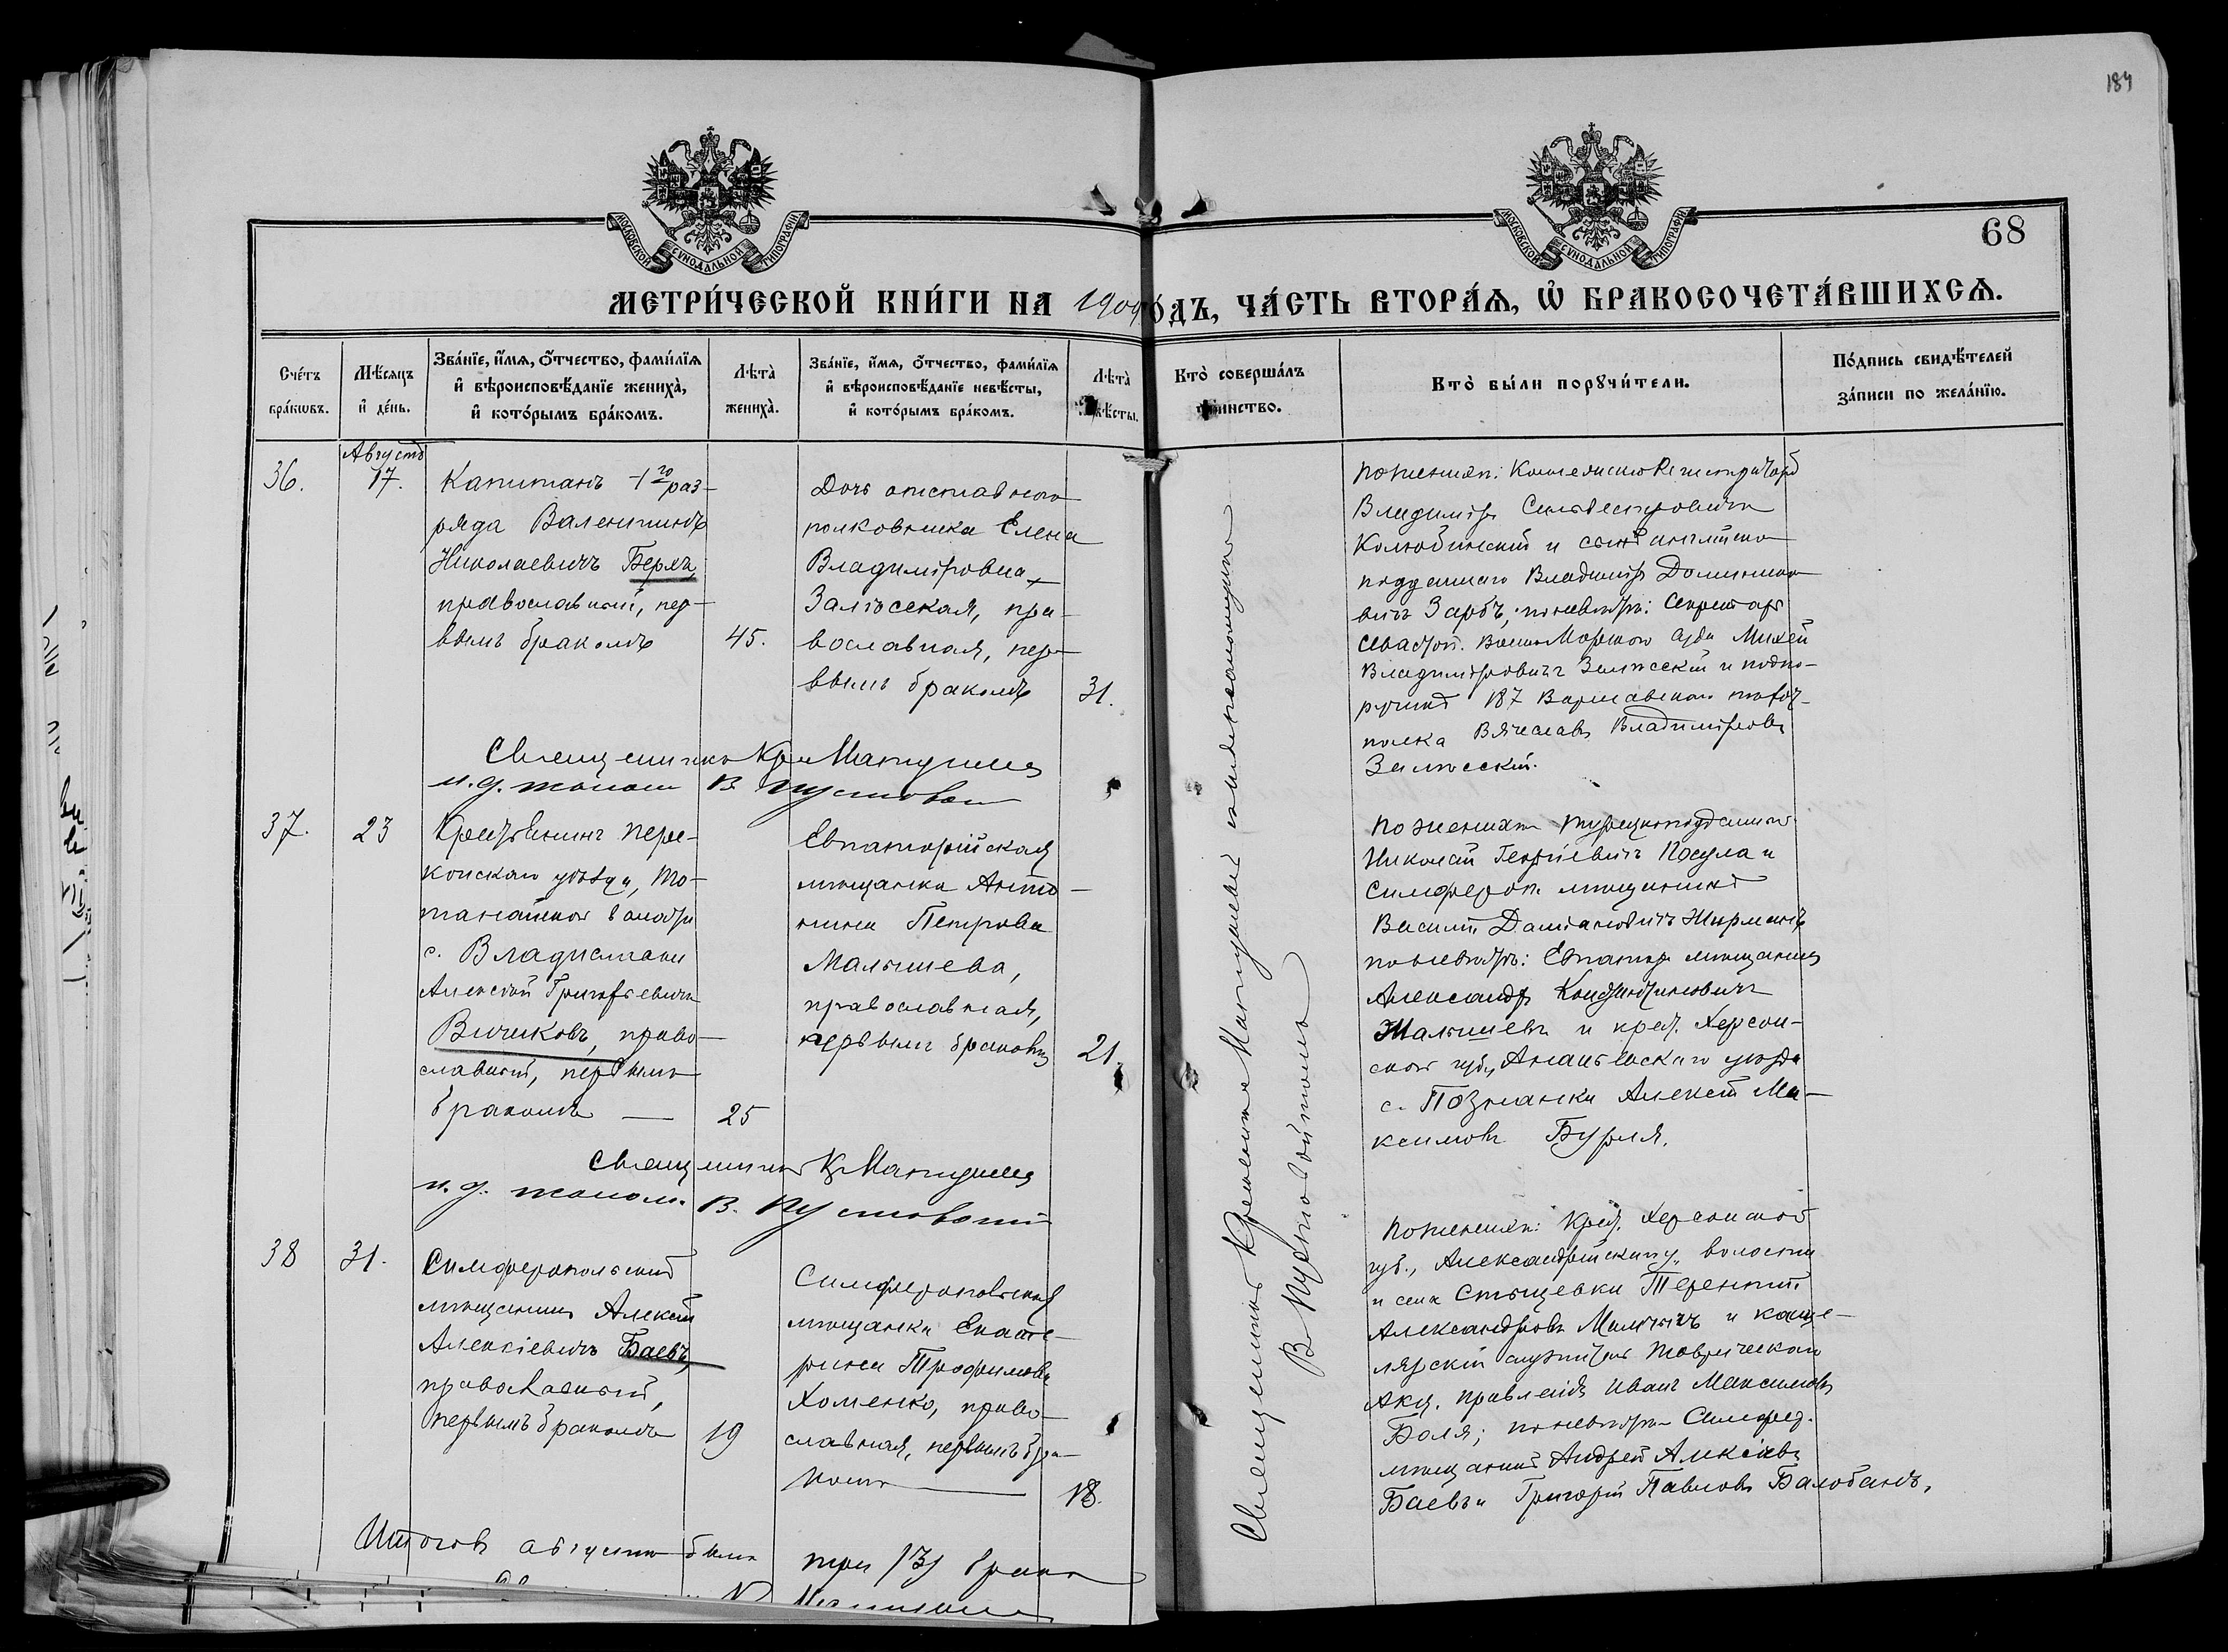 184
МОСКОВСКОЙ СУНОДАЛЬНОЙ ТИПОГРАФІИ
МОСКОВСКОЙ СУНОДАЛЬНОЙ ТИПОГРАФІИ
68
МЕТРИ́ЧЕСКОЙ КНИ́ГИ НА 1909 ГО́ДЪ, ЧА́СТЬ ВТОРА́Ѧ, Ѽ БРАКОСОЧЕТА́ВШИХСѦ.
Сче́тъ
бра́кѡвъ.
Мѣ́сяцъ
и҆ де́нь.
Зва́нїе, и҆́мѧ, ѻ҆́тчество, фами́лїѧ
и҆ вѣроисповѣ́данїе жениха̀,
и҆ кото́рымъ бра́комъ.
Лѣта̀
жениха̀.
Зва́нїе, и҆́мѧ, ѻ҆́тчество, фами́лїѧ
и҆ вѣроисповѣ́данїе невѣ́сты,
и҆ кото́рымъ бра́комъ.
Лѣта̀
невѣ́сты.
Кто̀ соверша́лъ
таинство.
Кто̀ бы́ли порꙋчи́тели.
По́дпись свидѣ́телей
за́писи по жела́нїю.
Августъ
36.
17.
Капитанъ 1го раз-
ряда Валентинъ
Николаевичъ Берхъ,
православный, пер-
вымъ бракомъ
45.
Дочь отставного
полковника Елена
Владиміровна
Залѣсская, пра-
вославная, пер-
вымъ бракомъ
31.
По женихѣ:
Владиміръ Сильвестровичъ
и сынъ англійско
подданнаго Владиміръ
вичъ Зарбъ; по невѣстѣ: Секретарь
Севастоп. Военно Морского Суда Михей
Владиміровичъ Залѣсскій и подпо-
ручикъ 187 Варшавскаго
полка Вячеславъ Владиміровъ
Залѣсскій.
Священникъ Кр. Матушевъ
и. д. псалом. В Пустовой
37.
23
Крестьянинъ Пере-
копскаго уѣзда,
волости
с. Владиславки
Алексѣй Григорьевичъ
православный, первымъ
бракомъ
25
Евпаторійская
мѣщанка Анто-
нина Петрова
Малышева,
православная,
первымъ бракомъ
21.
По женихѣ турецкоподданный
Николай Георгіевичъ и
Симфероп. мѣщанинъ
Василій Даміановичъ
по невѣстѣ: Евпатор. мѣщанинъ
Александръ Константиновичъ
Малышевъ и крест. Херсон-
ской губ., Ананьевскаго уѣзда
с. Познанки Алексѣй Ма-
ксимовъ Бурля.
Священникъ К Матушевъ
и. д. псалом. В. Пустовой
38
31.
Симферопольскій
мѣщанинъ Алексѣй
Алексіевичъ Баевъ,
православный,
первымъ бракомъ
19
Симферопольская
мѣщанка Екате-
рина Трофимова
Хоменко, право-
славная, первымъ бра-
комъ
18.
По женихѣ: Крест. Херсонской
губ., Александрійскаго у., волости
и села Терентій
Александровъ и канце-
лярскій служитель Таврическаго
Акц. правленія Иванъ Максимовъ
Боля; по невѣстѣ Симфер.
мѣщанинъ Андрей Алексіевъ
Баевъ и Григорій Павловъ Балобанъ.
Священникъ Матушевъ съ псаломщикомъ
В. Пустовойтомъ
Итого въ августѣ было три /3/ брака